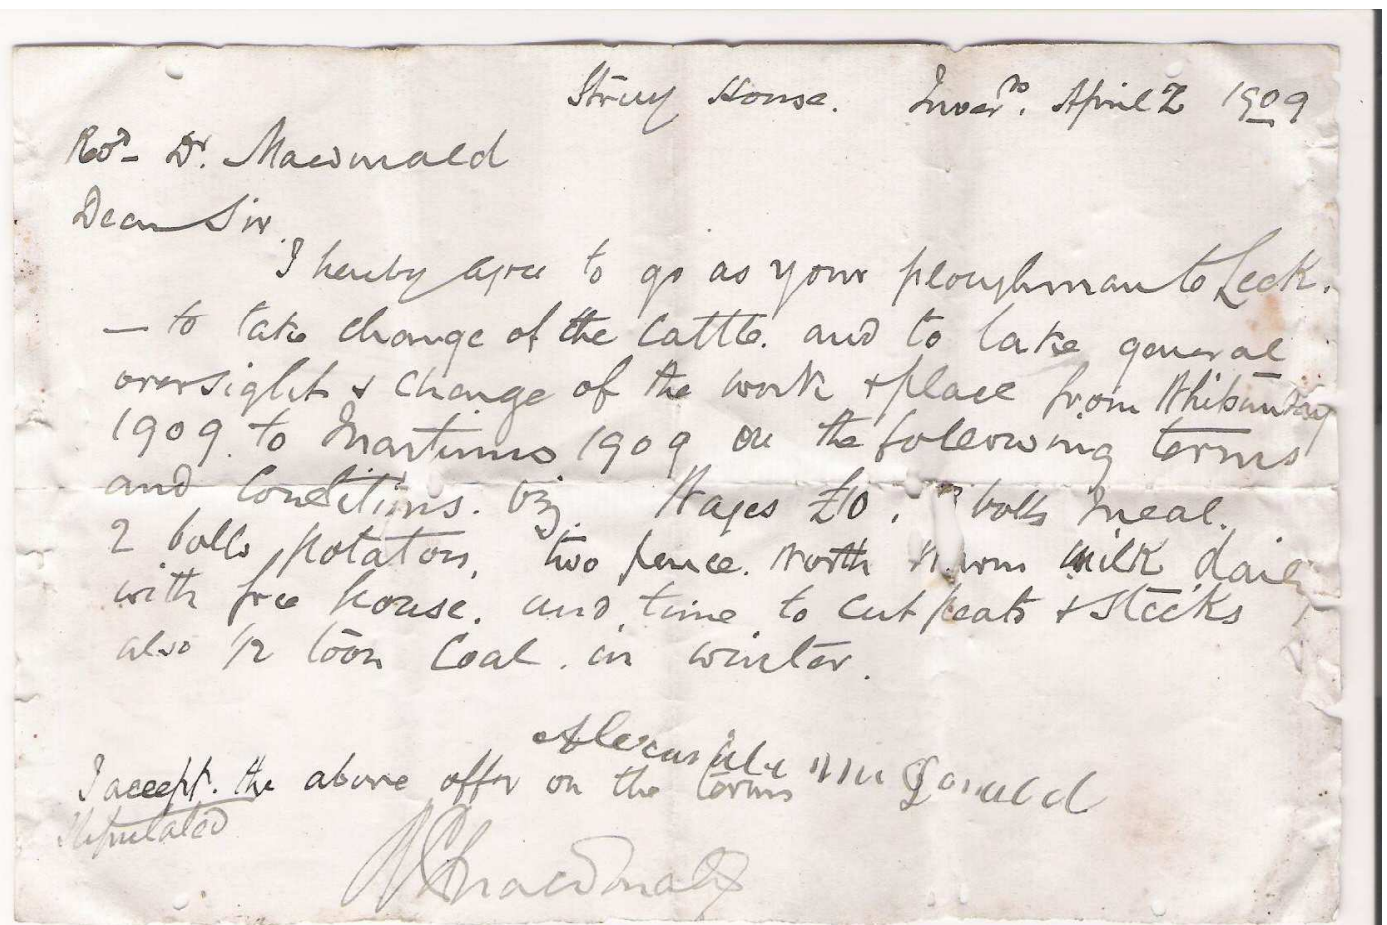 Struy House. Inverns. April 2 1909
Revd Dr. Macdonald
Dear Sir.
I hereby agree to go as your ploughman to Leck.
— to take charge of the Cattle. and to take general
oversight & charge of the work & place from Whitsunday
1909 to Martinmas 1909 on the following terms
and Conditions. viz. Wages £10. bolls meal.
2 bolls potatoes, two pence worth warm milk daily
with free house. and time to cut peats & sticks
also 1/2 toon Coal. in winter.
Alexander Mc Donald
I accept the above offer on the terms
stipulated
Macdonald